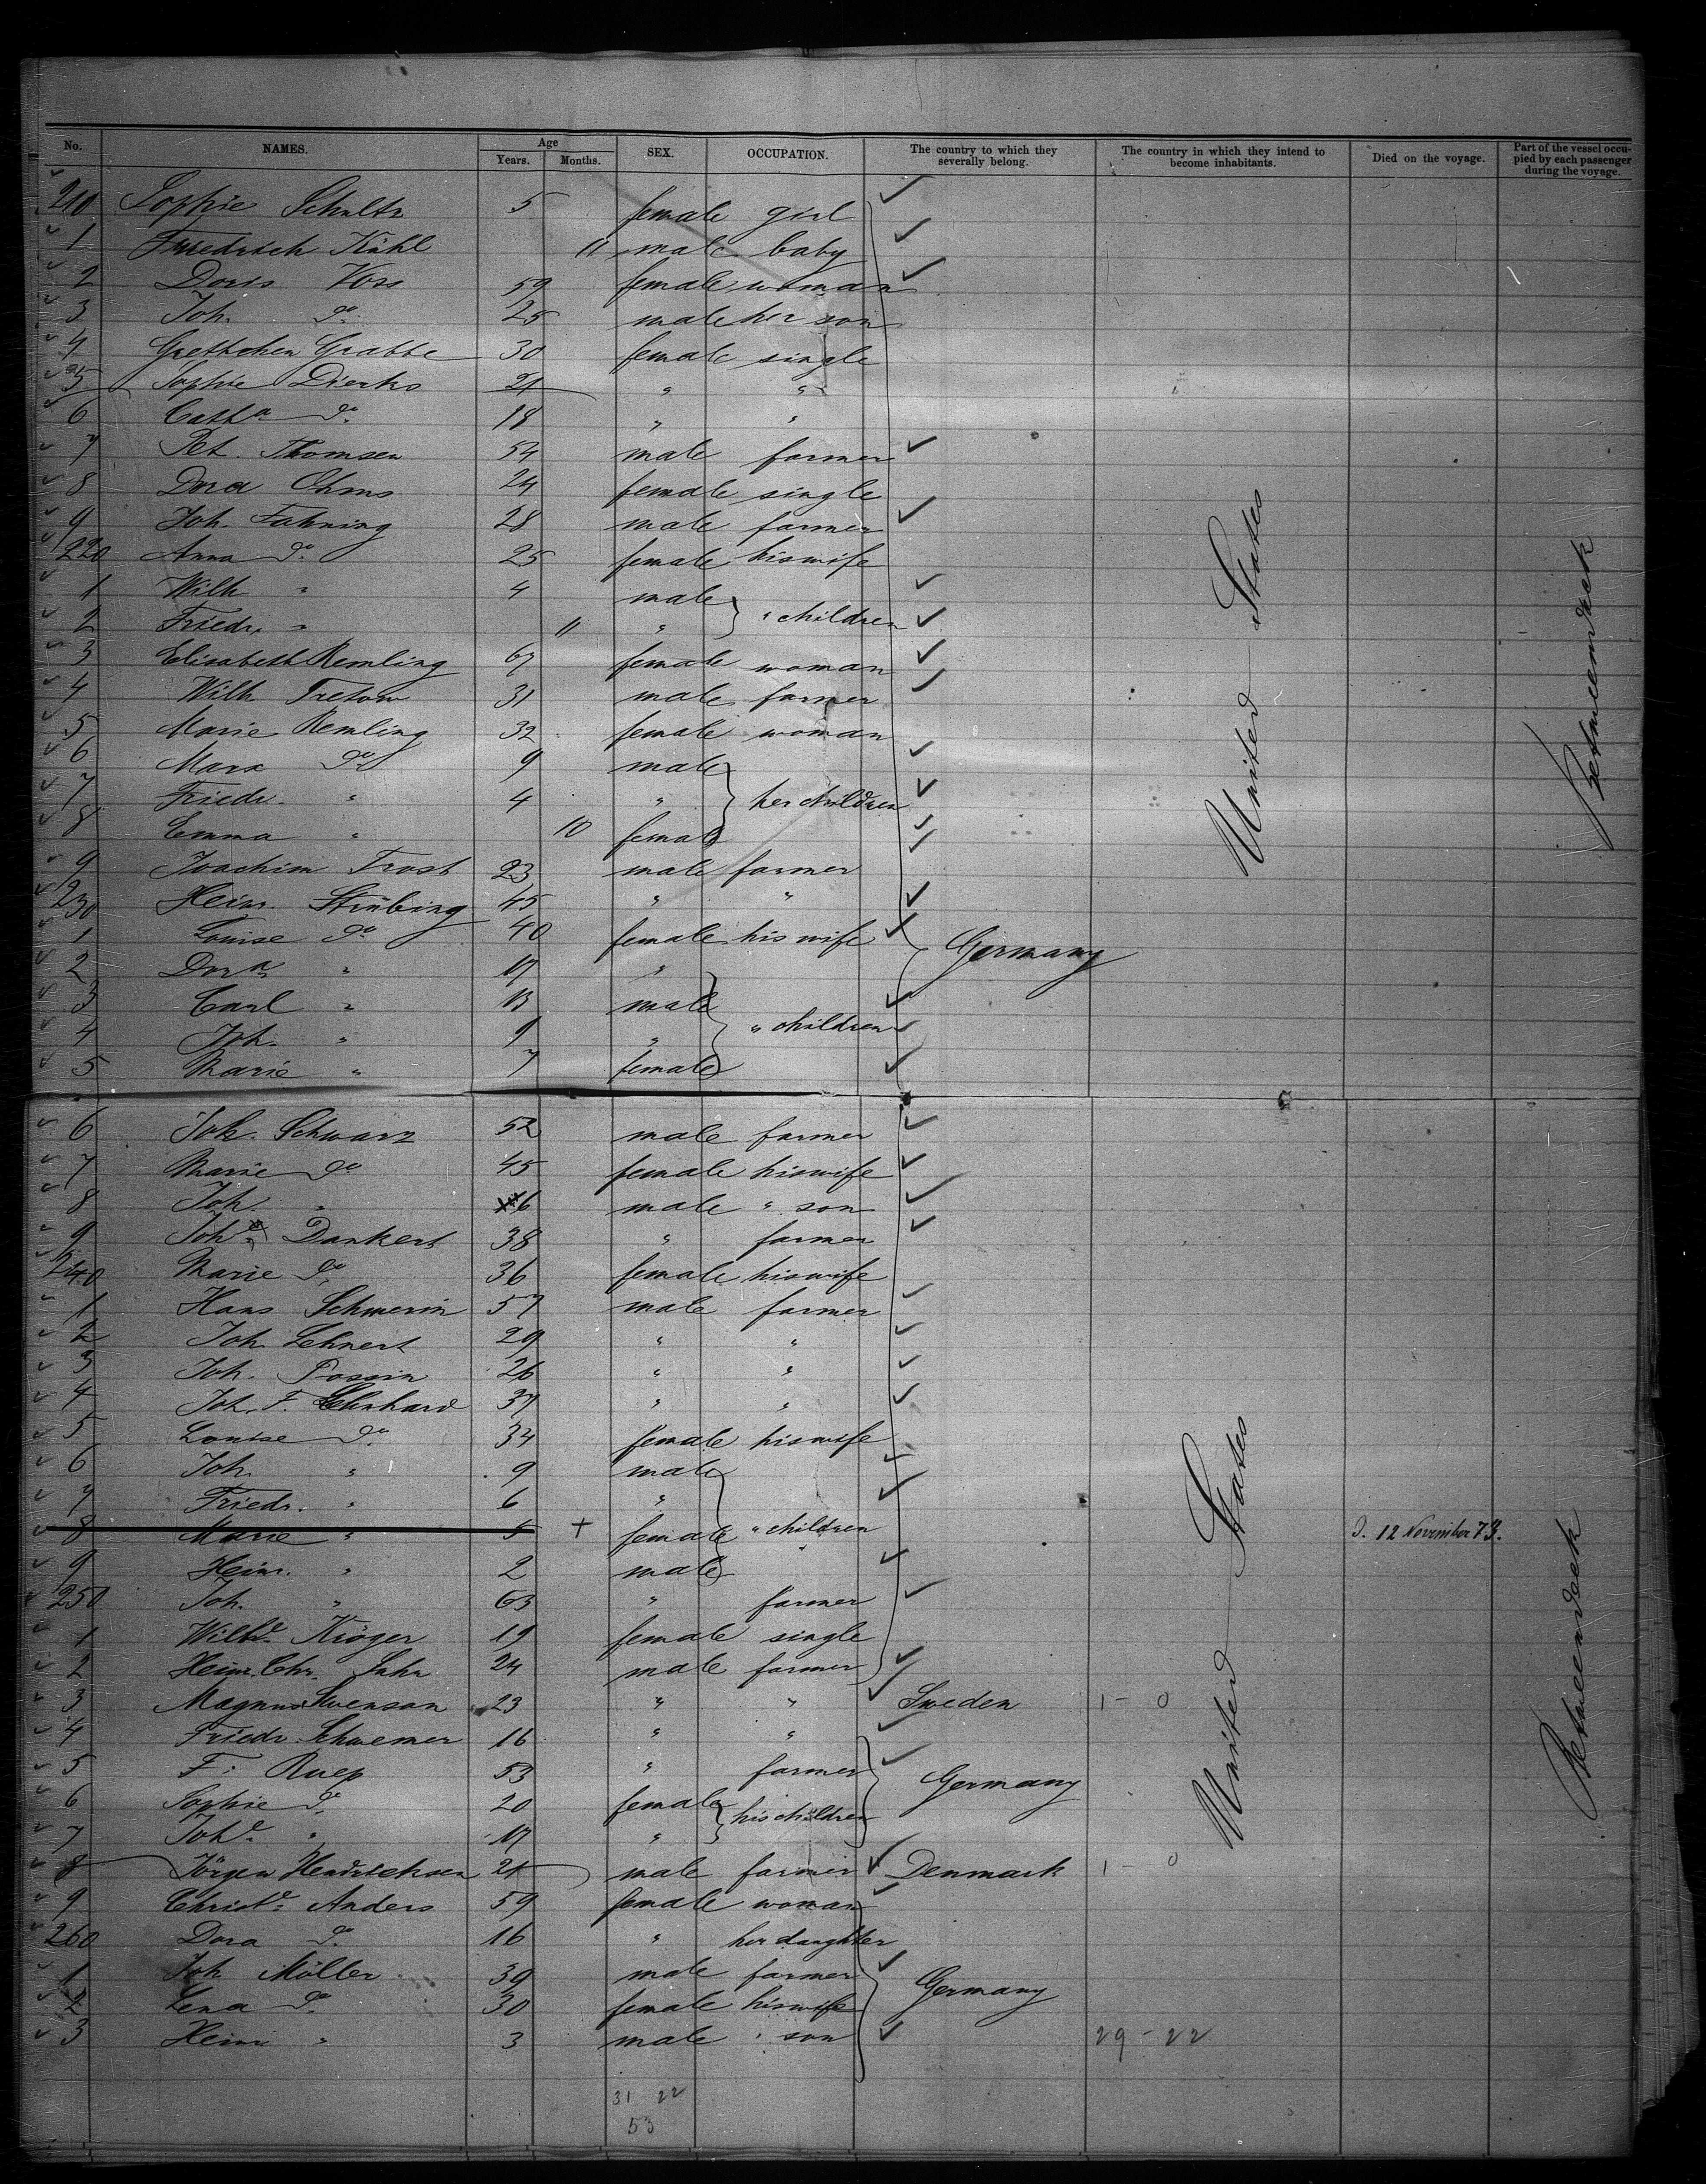 No. NAMES. Age Years. Months. SEX. OCCUPATION. The country to which they severally belong. The country in which they intend to become inhabitants. Died on the voyage. Part of the vessel occupied by each passenger during the voyage.
210 Sophie Schultz 5 female girl
1 Friedrich Kühl 11 male baby
2 Doris Voss 59 female woman
3 Joh. do. 25 male her son
4 Grettchen Grabbe 30 female single
5 Sophie Dierks 21 " "
6 Catha do. 18 " "
7 Pet. Thomsen 54 male farmer
8 Dora Ohms 24 female single
9 Joh. Fahning 28 male farmer
220 Anna do. 25 female his wife
1 Wilh " 4 male
2 Friedr. " 11 " " children
3 Elisabeth Remling 67 female woman
4 Wilh Tretow 31 male farmer
5 Marie Remling 32 female woman
6 Marx do 9 male
7 Friedr. " 4 " her children
8 Emma " 10 female
9 Joachim Trost 23 male farmer
230 Heinr. Strübing 45 " "
1 Louise do. 40 female his wife Germany
2 Dora " 17 "
3 Carl " 13 male
4 Joh. " 9 " " children
5 Marie " 7 female
6 Joh. Schwarz 52 male farmer
7 Marie do 45 female his wife
8 Joh. " 16 male " son
9 Joh. Dankert 38 " farmer
240 Marie do. 36 female his wife
1 Hans Schwerin 57 male farmer
2 Joh. Lehnert 29 " "
3 Joh. Possin 26 " "
4 Joh. F. 37 " "
5 Louise do. 34 female his wife
6 Joh. " 9 male
7 Friedr. " 6 "
8 Marie " 5 + female " children d. 12 November 73.
9 Heinr. " 2 male
250 Joh. " 63 " farmer
1 Wilhe Kröger 19 female single
2 Heinr. Chr. Suhr 24 male farmer
3 Magnus Swenson 23 " " Sweden 1 - 0
4 Friedr. Schwemer 16 " "
5 F. Ruep 53 " farmer Germany
6 Sophie do. 20 female his children
7 Johe. " 17 "
8 Jörgen Hendrichsen 21 male farmer Denmark 1 - 0
9 Christe. Anders 59 female woman
260 Dora do. 16 " her daughter
1 Joh Möller 39 male farmer Germany
2 Lena do. 30 female his wife
3 Heinr " 3 male " son 29 - 22
31 22
53
United States
United States
Betweendeck
Betweendeck